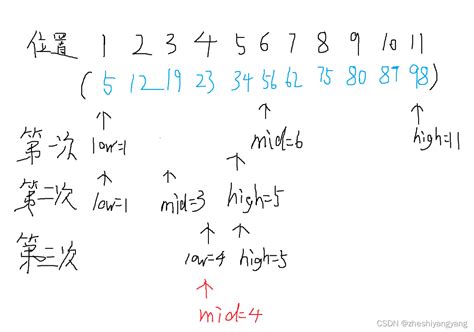 位置 1 2 3 4 5 6 7 8 9 10 11
( 5 12 19 23 34 56 62 75 80 87 98)
第一次 low=1 mid=6 high=11
第二次 low=1 mid=3 high=5
第三次 low=4 high=5
mid=4
CSDN @zheshiyangyang